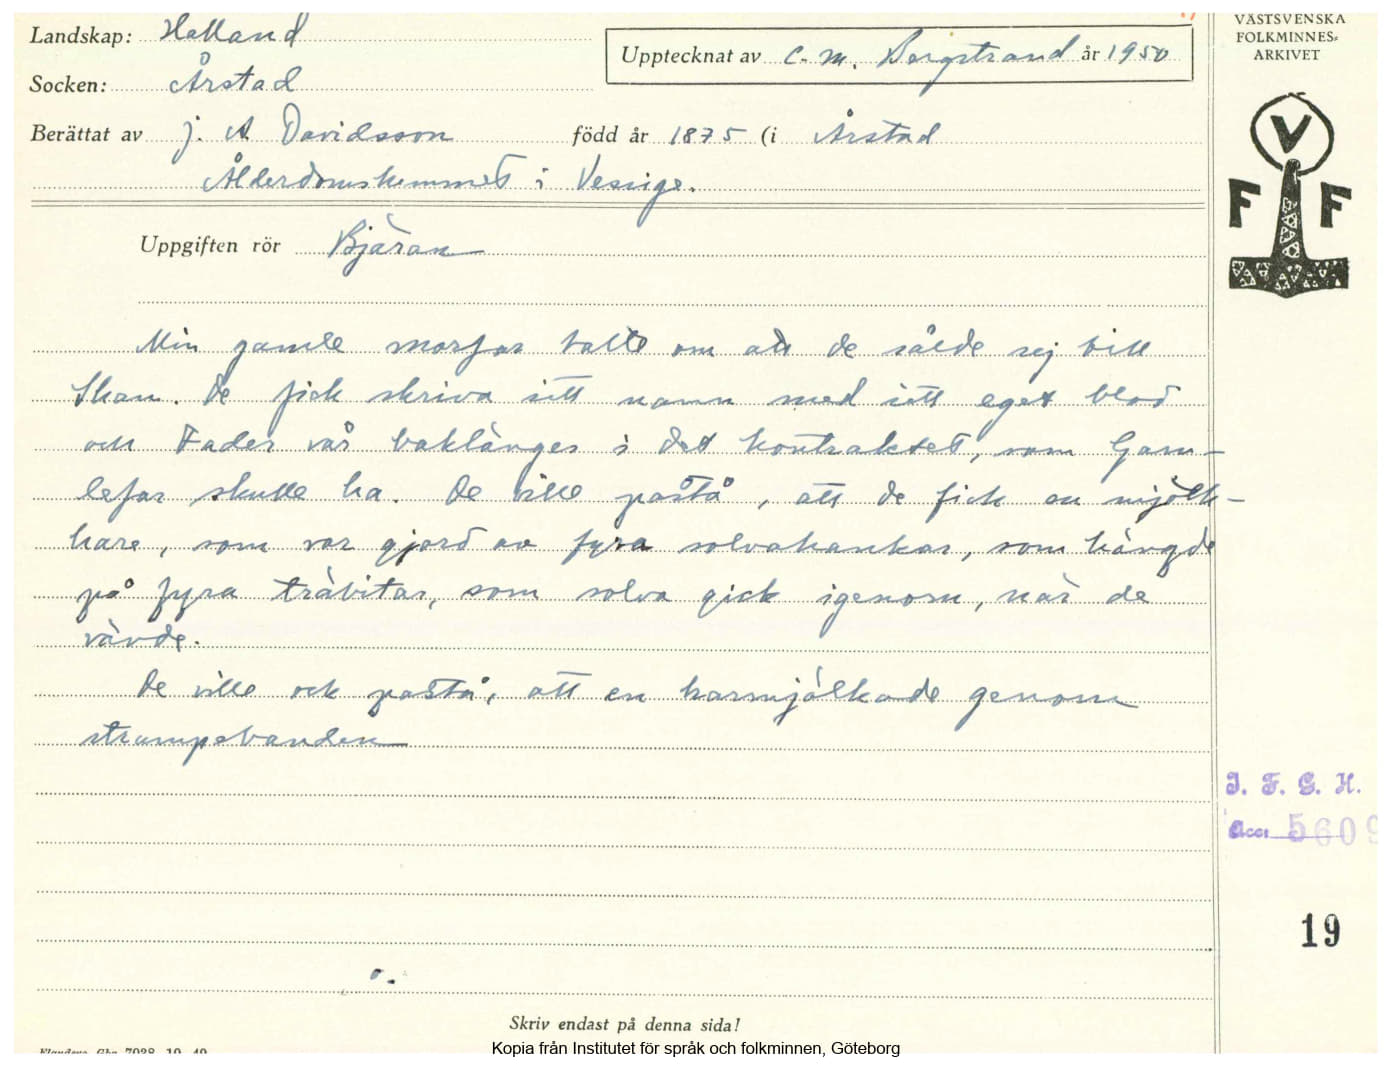 Landskap: Halland
Socken: Årstad
Upptecknat av C. M. Bergstrand år 1950
Berättat av J. A. Davidsson född år 1875 (i Årstad
Ålderdomshemmet i Vessige.
Uppgiften rör Bjäran
Min gamle morfar talte om att de sålde sej till
Skam. De fick skriva sitt namn med sitt eget blod
och Fader vår baklänges i det kontraktet, som Gam-
lefar skulle ha. De ville påstå, att de fick en mjölk-
hare, som var gjord av fyra solvahankar, som hängde
på fyra träbitar, som solva gick igenom, när de
vävde.
De ville ock påstå, att en harmjölkade genom
strumpebanden
VÄSTSVENSKA
FOLKMINNES-
ARKIVET
V
F F
I. F. G. H.
Acc: 5609
19
Skriv endast på denna sida!
Kopia från Institutet för språk och folkminnen, Göteborg